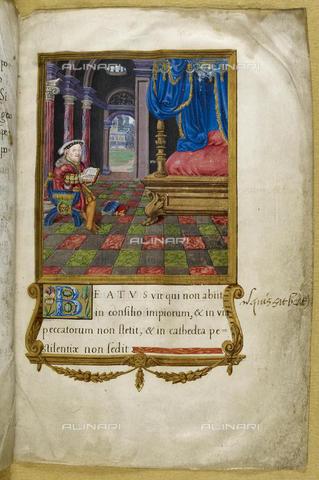 ALINARI
ALINARI
ALINARI
BEATUS vir qui non abiit
in consilio impiorum, & in via
peccatorum non stetit, & in cathedra pe-
stilentiæ non sedit
ALINARI